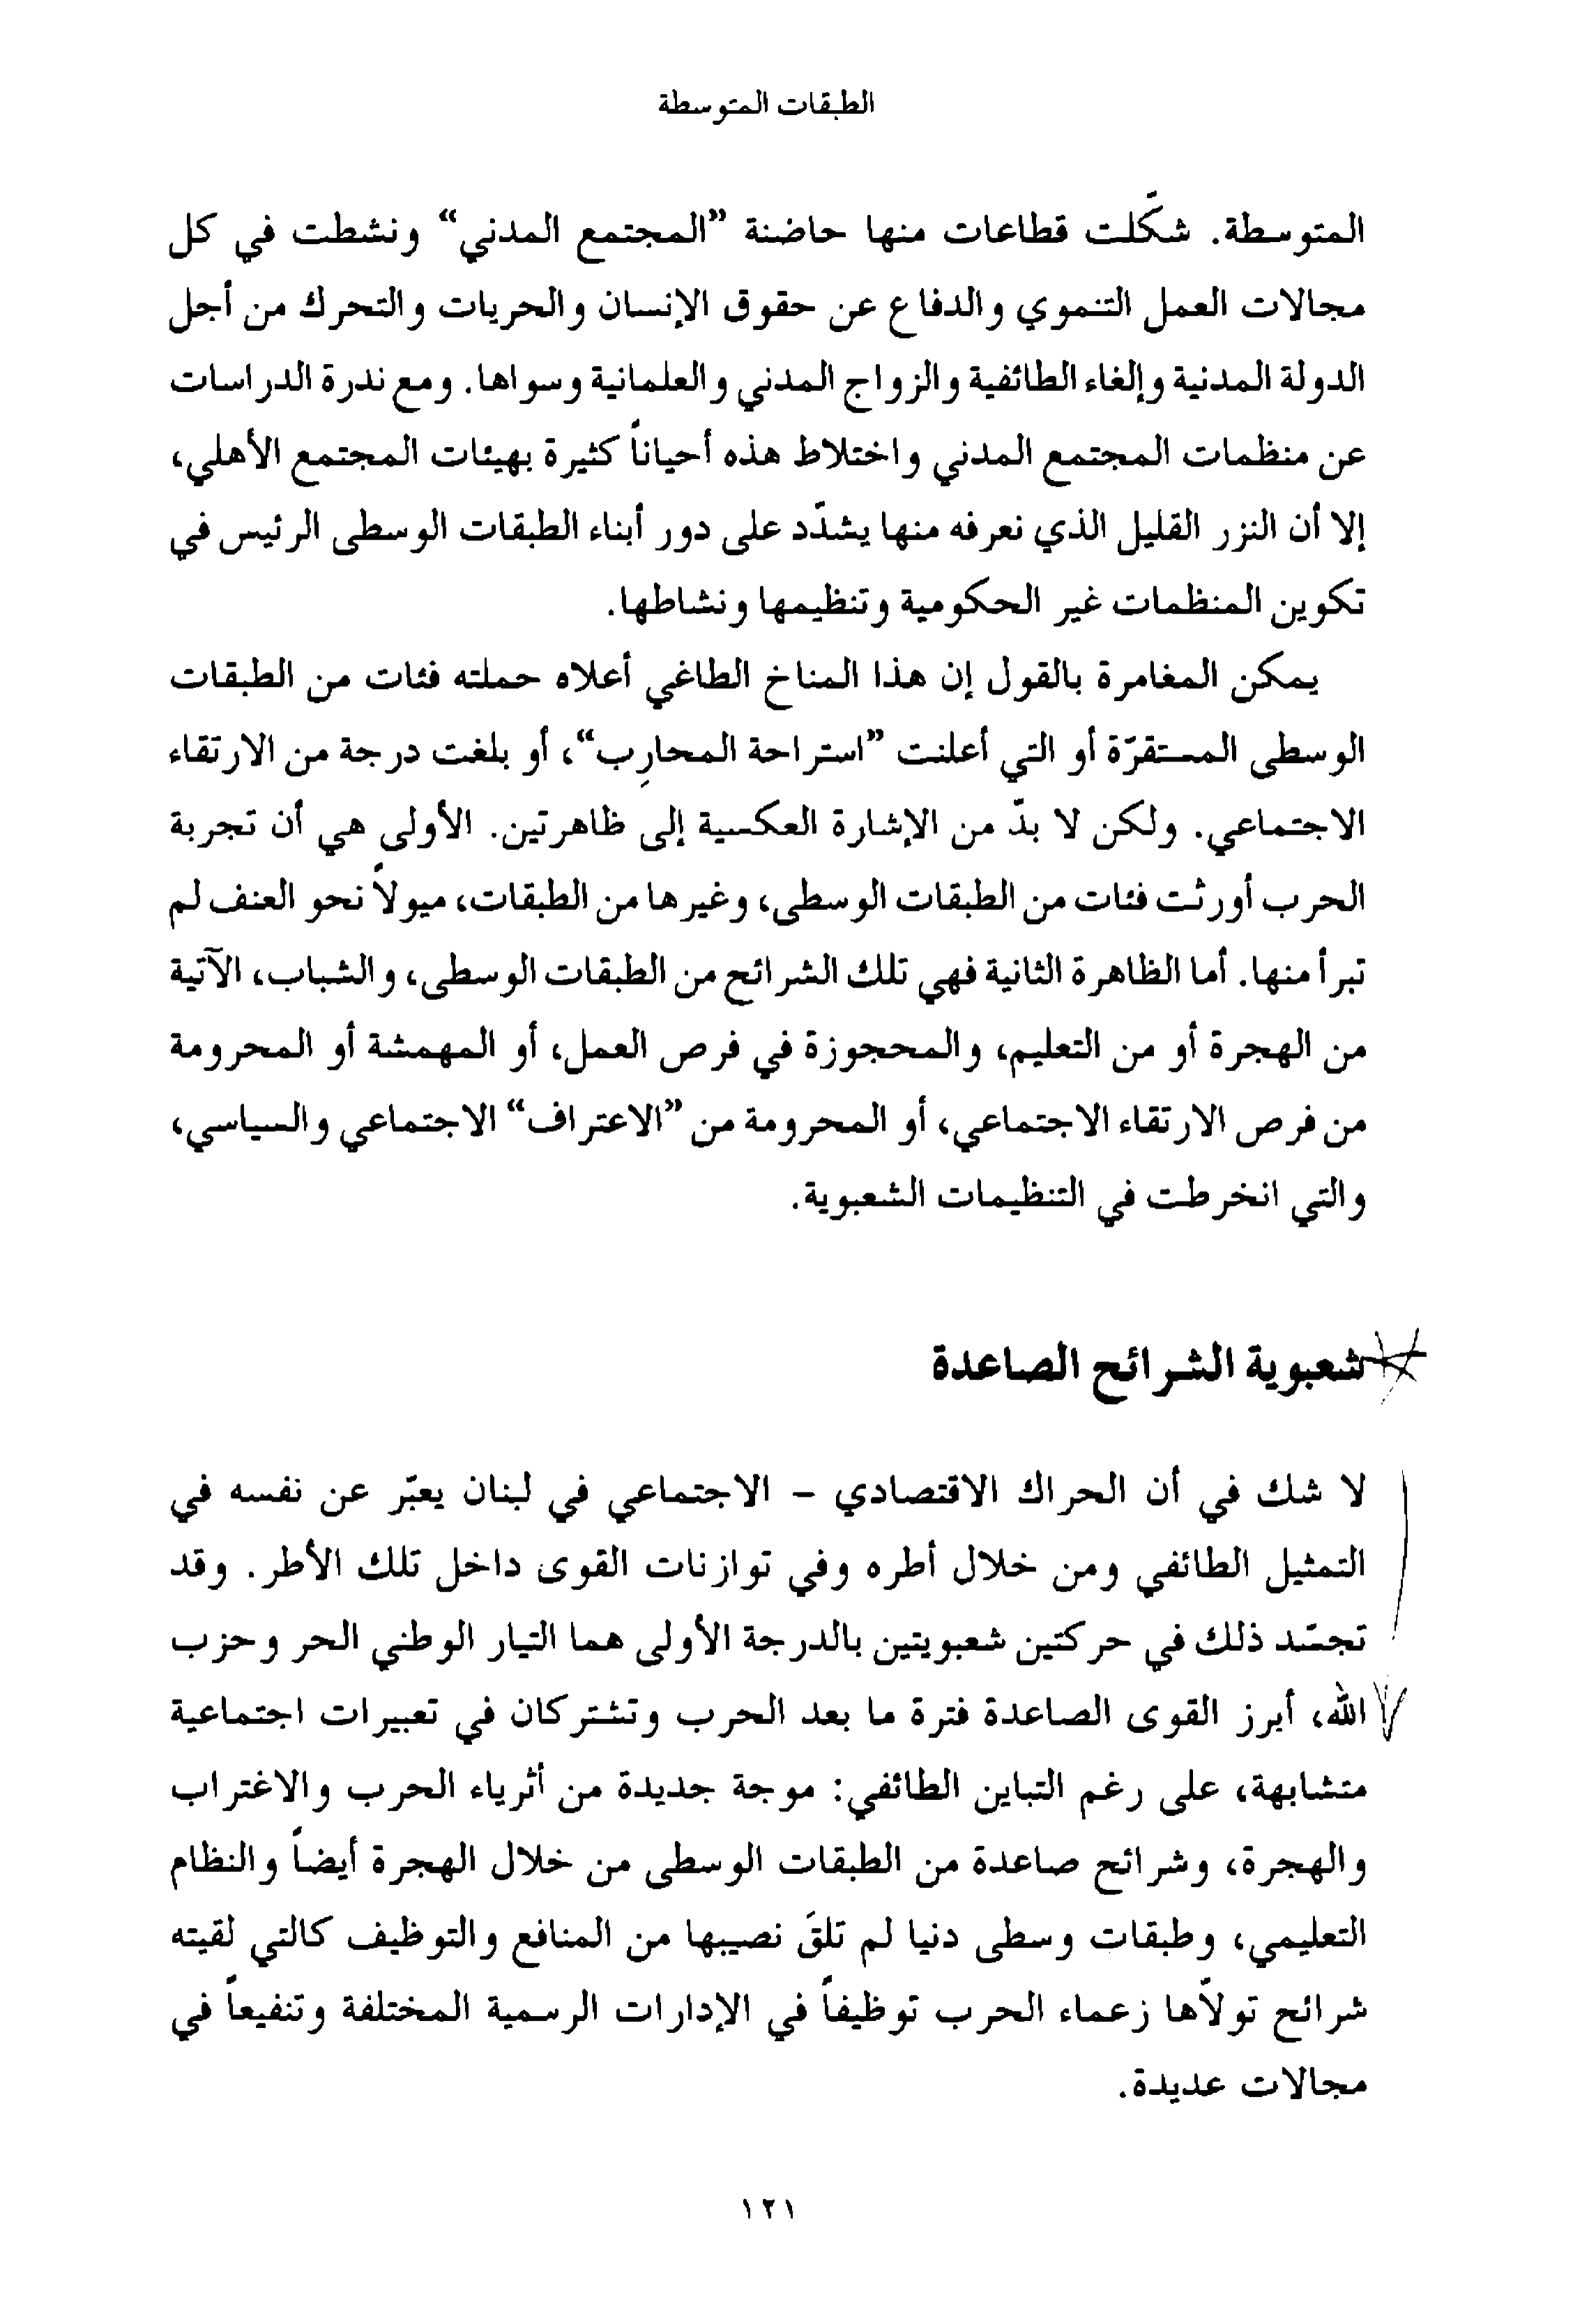 الطبقات المتوسطة
المتوسطة. شكّلت قطاعات منها حاضنة ”المجتمع المدني“ ونشطت في كل
مجالات العمل التنموي والدفاع عن حقوق الإنسان والحريات والتحرك من أجل
الدولة المدنية وإلغاء الطائفية والزواج المدني والعلمانية وسواها. ومع ندرة الدراسات
عن منظمات المجتمع المدني واختلاط هذه أحياناً كثيرة بهيئات المجتمع الأهلي،
إلا أن النزر القليل الذي نعرفه منها يشدّد على دور أبناء الطبقات الوسطى الرئيس في
تكوين المنظمات غير الحكومية وتنظيمها ونشاطها.
يمكن المغامرة بالقول إن هذا المناخ الطاغي أعلاه حملته فئات من الطبقات
الوسطى المستقرّة أو التي أعلنت ”استراحة المحارِب“، أو بلغت درجة من الارتقاء
الاجتماعي. ولكن لا بدّ من الإشارة العكسية إلى ظاهرتين. الأولى هي أن تجربة
الحرب أورثت فئات من الطبقات الوسطى، وغيرها من الطبقات، ميولاً نحو العنف لم
تبرأ منها. أما الظاهرة الثانية فهي تلك الشرائح من الطبقات الوسطى، والشباب، الآتية
من الهجرة أو من التعليم، والمحجوزة في فرص العمل، أو المهمشة أو المحرومة
من فرص الارتقاء الاجتماعي، أو المحرومة من ”الاعتراف“ الاجتماعي والسياسي،
والتي انخرطت في التنظيمات الشعبوية.
شعبوية الشرائح الصاعدة
لا شك في أن الحراك الاقتصادي - الاجتماعي في لبنان يعبّر عن نفسه في
التمثيل الطائفي ومن خلال أطره وفي توازنات القوى داخل تلك الأطر. وقد
تجسّد ذلك في حركتين شعبويتين بالدرجة الأولى هما التيار الوطني الحر وحزب
الله، أبرز القوى الصاعدة فترة ما بعد الحرب وتشتركان في تعبيرات اجتماعية
متشابهة، على رغم التباين الطائفي: موجة جديدة من أثرياء الحرب والاغتراب
والهجرة، وشرائح صاعدة من الطبقات الوسطى من خلال الهجرة أيضاً والنظام
التعليمي، وطبقات وسطى دنيا لم تلقَ نصيبها من المنافع والتوظيف كالتي لقيته
شرائح تولاّها زعماء الحرب توظيفاً في الإدارات الرسمية المختلفة وتنفيعاً في
مجالات عديدة.
١٢١